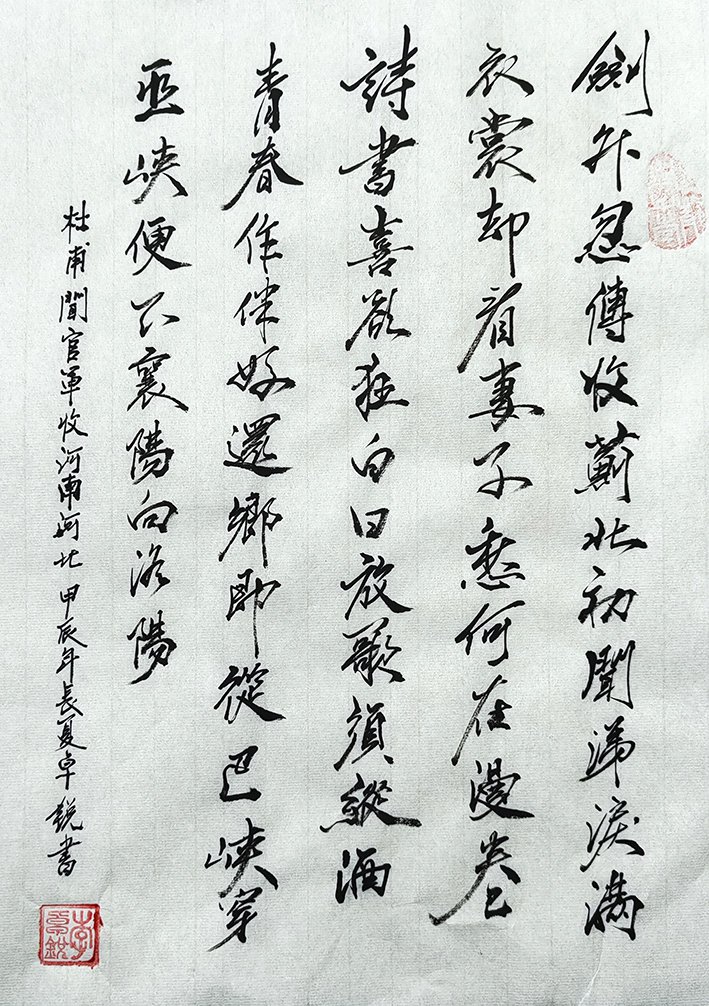 劍外忽傳收薊北初聞涕淚滿
衣裳却看妻子愁何在漫卷
詩書喜欲狂白日放歌須縱酒
青春作伴好還鄉即從巴峽穿
巫峽便下襄陽向洛陽
杜甫聞官軍收河南河北 甲辰年長夏卓銳書